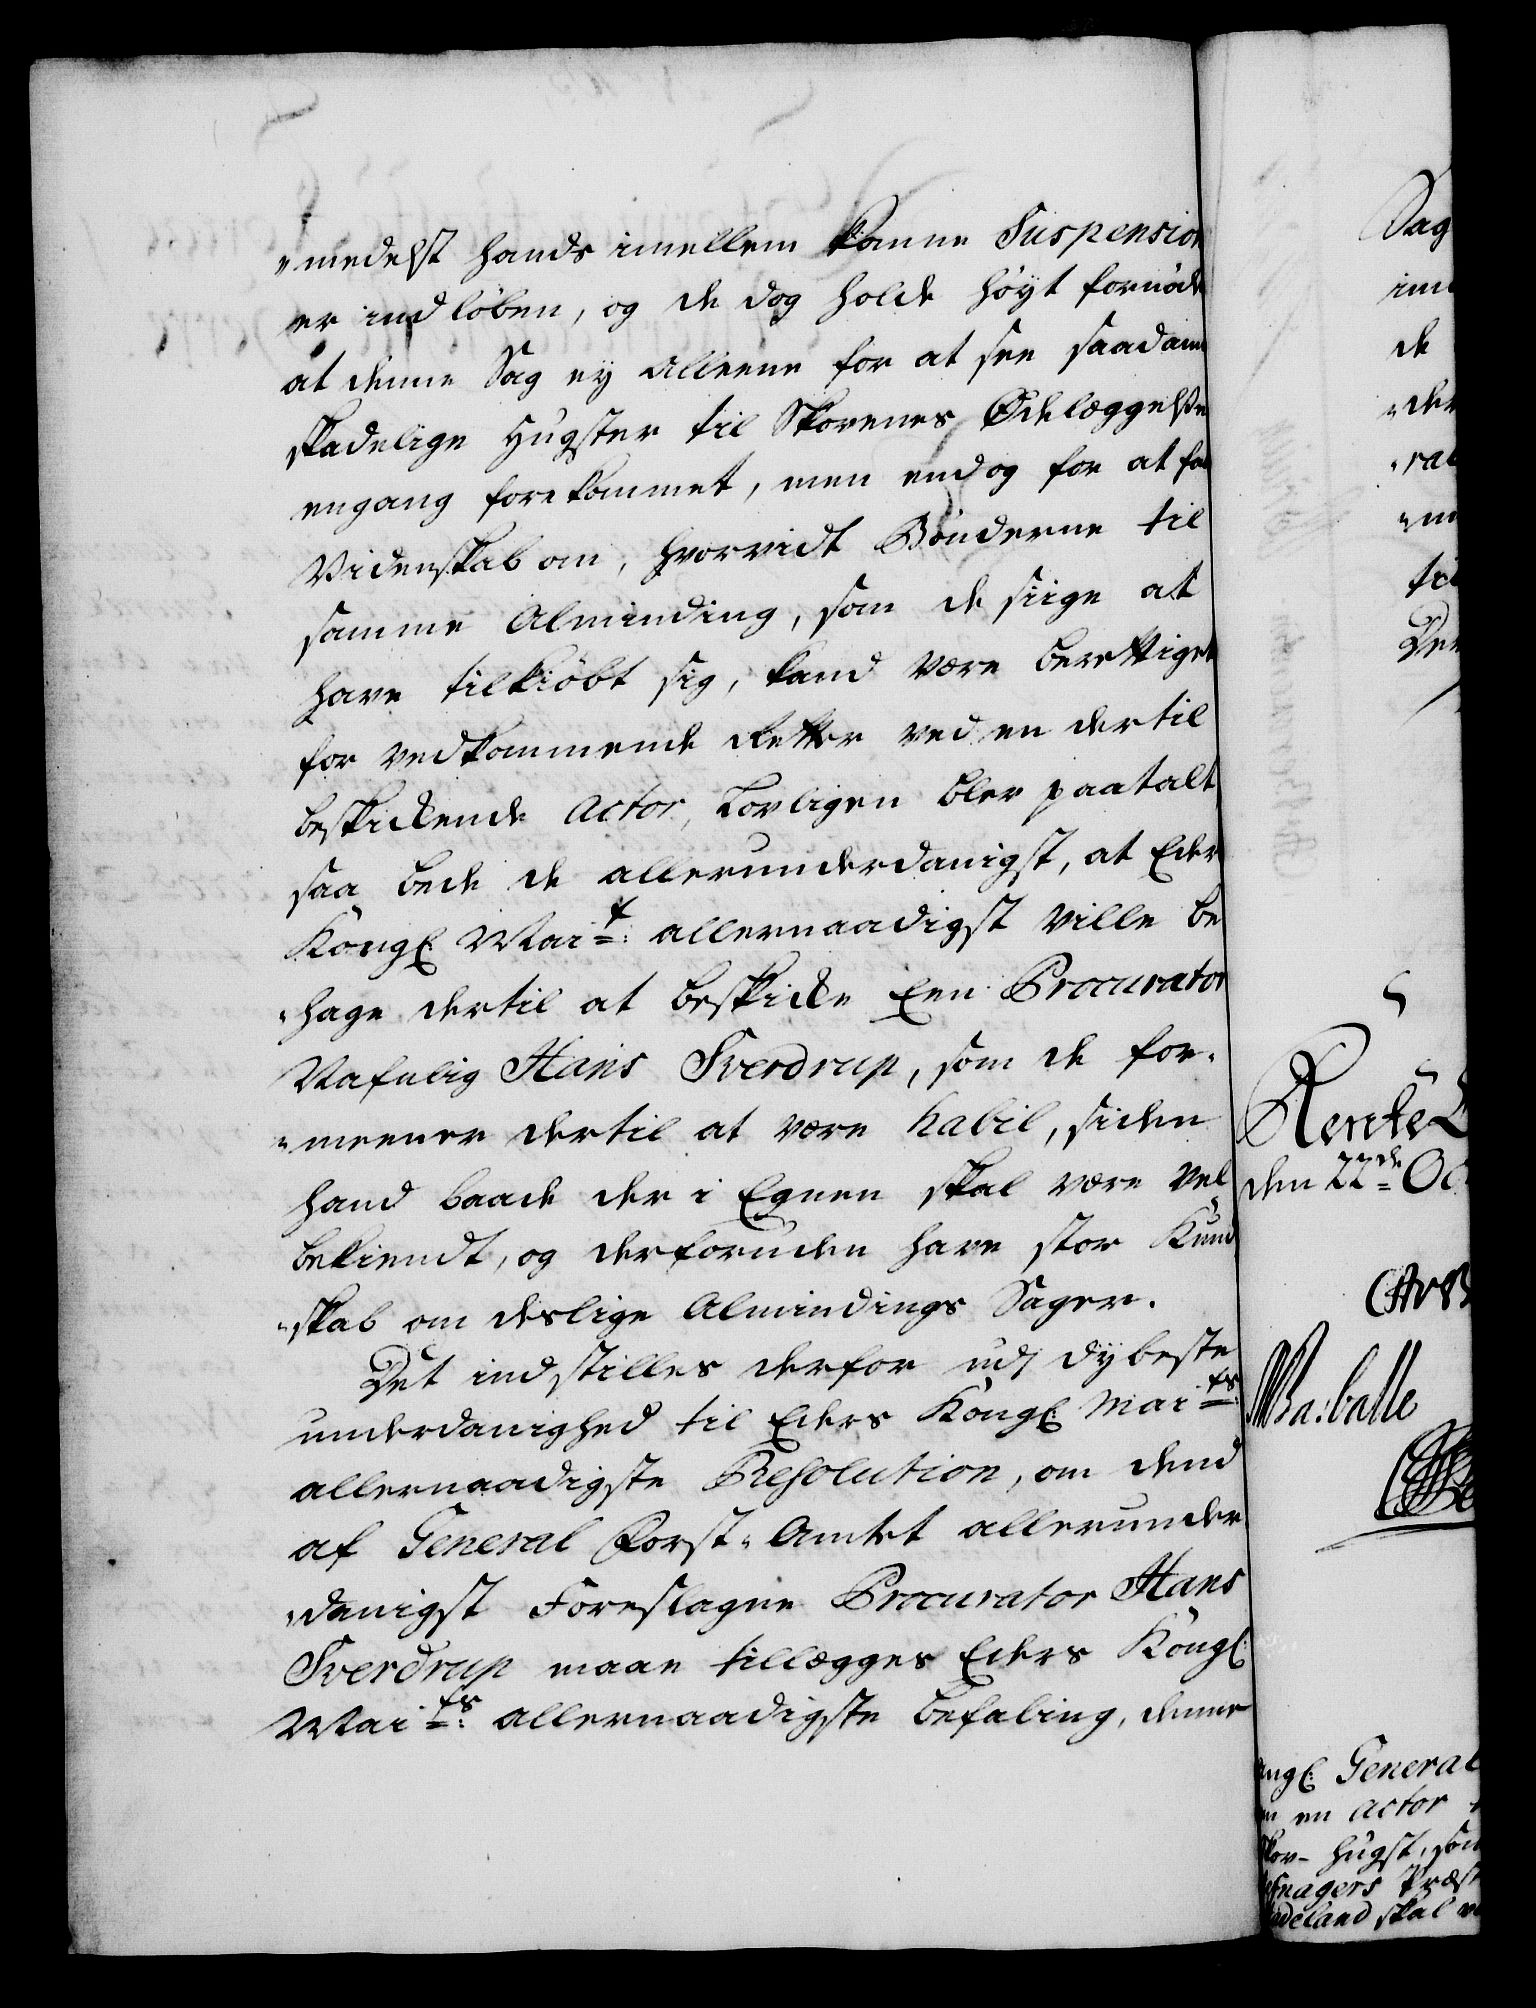 "medelst hands imellem komne Suspension
er indløben, og de dog holde høyt fornöde
at denne Sag ey alleene for at see saadann
skadelige Hugster til Skovenes Ödelæggelse
engang forekommet, men endog for at faa
Videnskab om, hvorvidt Bönderne til
samme Alminding, som de siige at
have tilkiöbt sig, kand være berettiget
for vedkommende Retter ved en dertil
beskickende Actor, Lovligen blev paatalt
saa bede de allerunderdanigst, at Eders
Kongl: Mai.t: allernaadigst ville be
"hage dertil at beskicke Een Procurator
Nafnlig Hans Sverdrup, som de for-
"meener dertil at være habil, siden
hand baade der i Egnen skal være vel
bekiendt, og derforuden have stor Kund
"skab om deslige Almindings Sager.
Det indstilles derfor udj dybeste
underdanighed til Eders Kongl: Mai.ts
allernaadigste Resolution, om dend
af General Forst-Amtet allerunder
"danigst Foreslagne Procurator Hans
Sverdrup maae tillægges Eders Kongl:
Mai.ts: allernaadigste befaling, denne
Sag
de
"der
Rente
den 22de Oc
Ba: balle
ngl: General
en Actor
Skov-Hugst, som
Præst
adeland skal